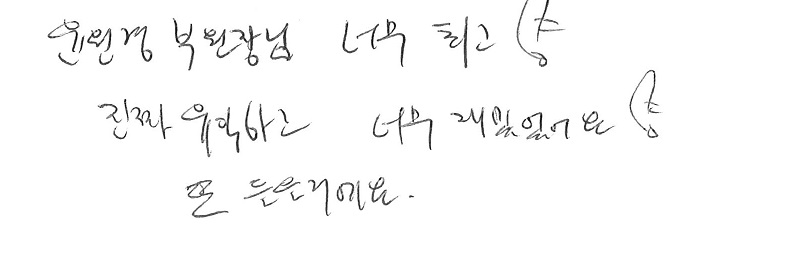 윤원경 부원장님 너무 최고
진짜 유익하고 너무 재밌었어요
또 듣을거에요.